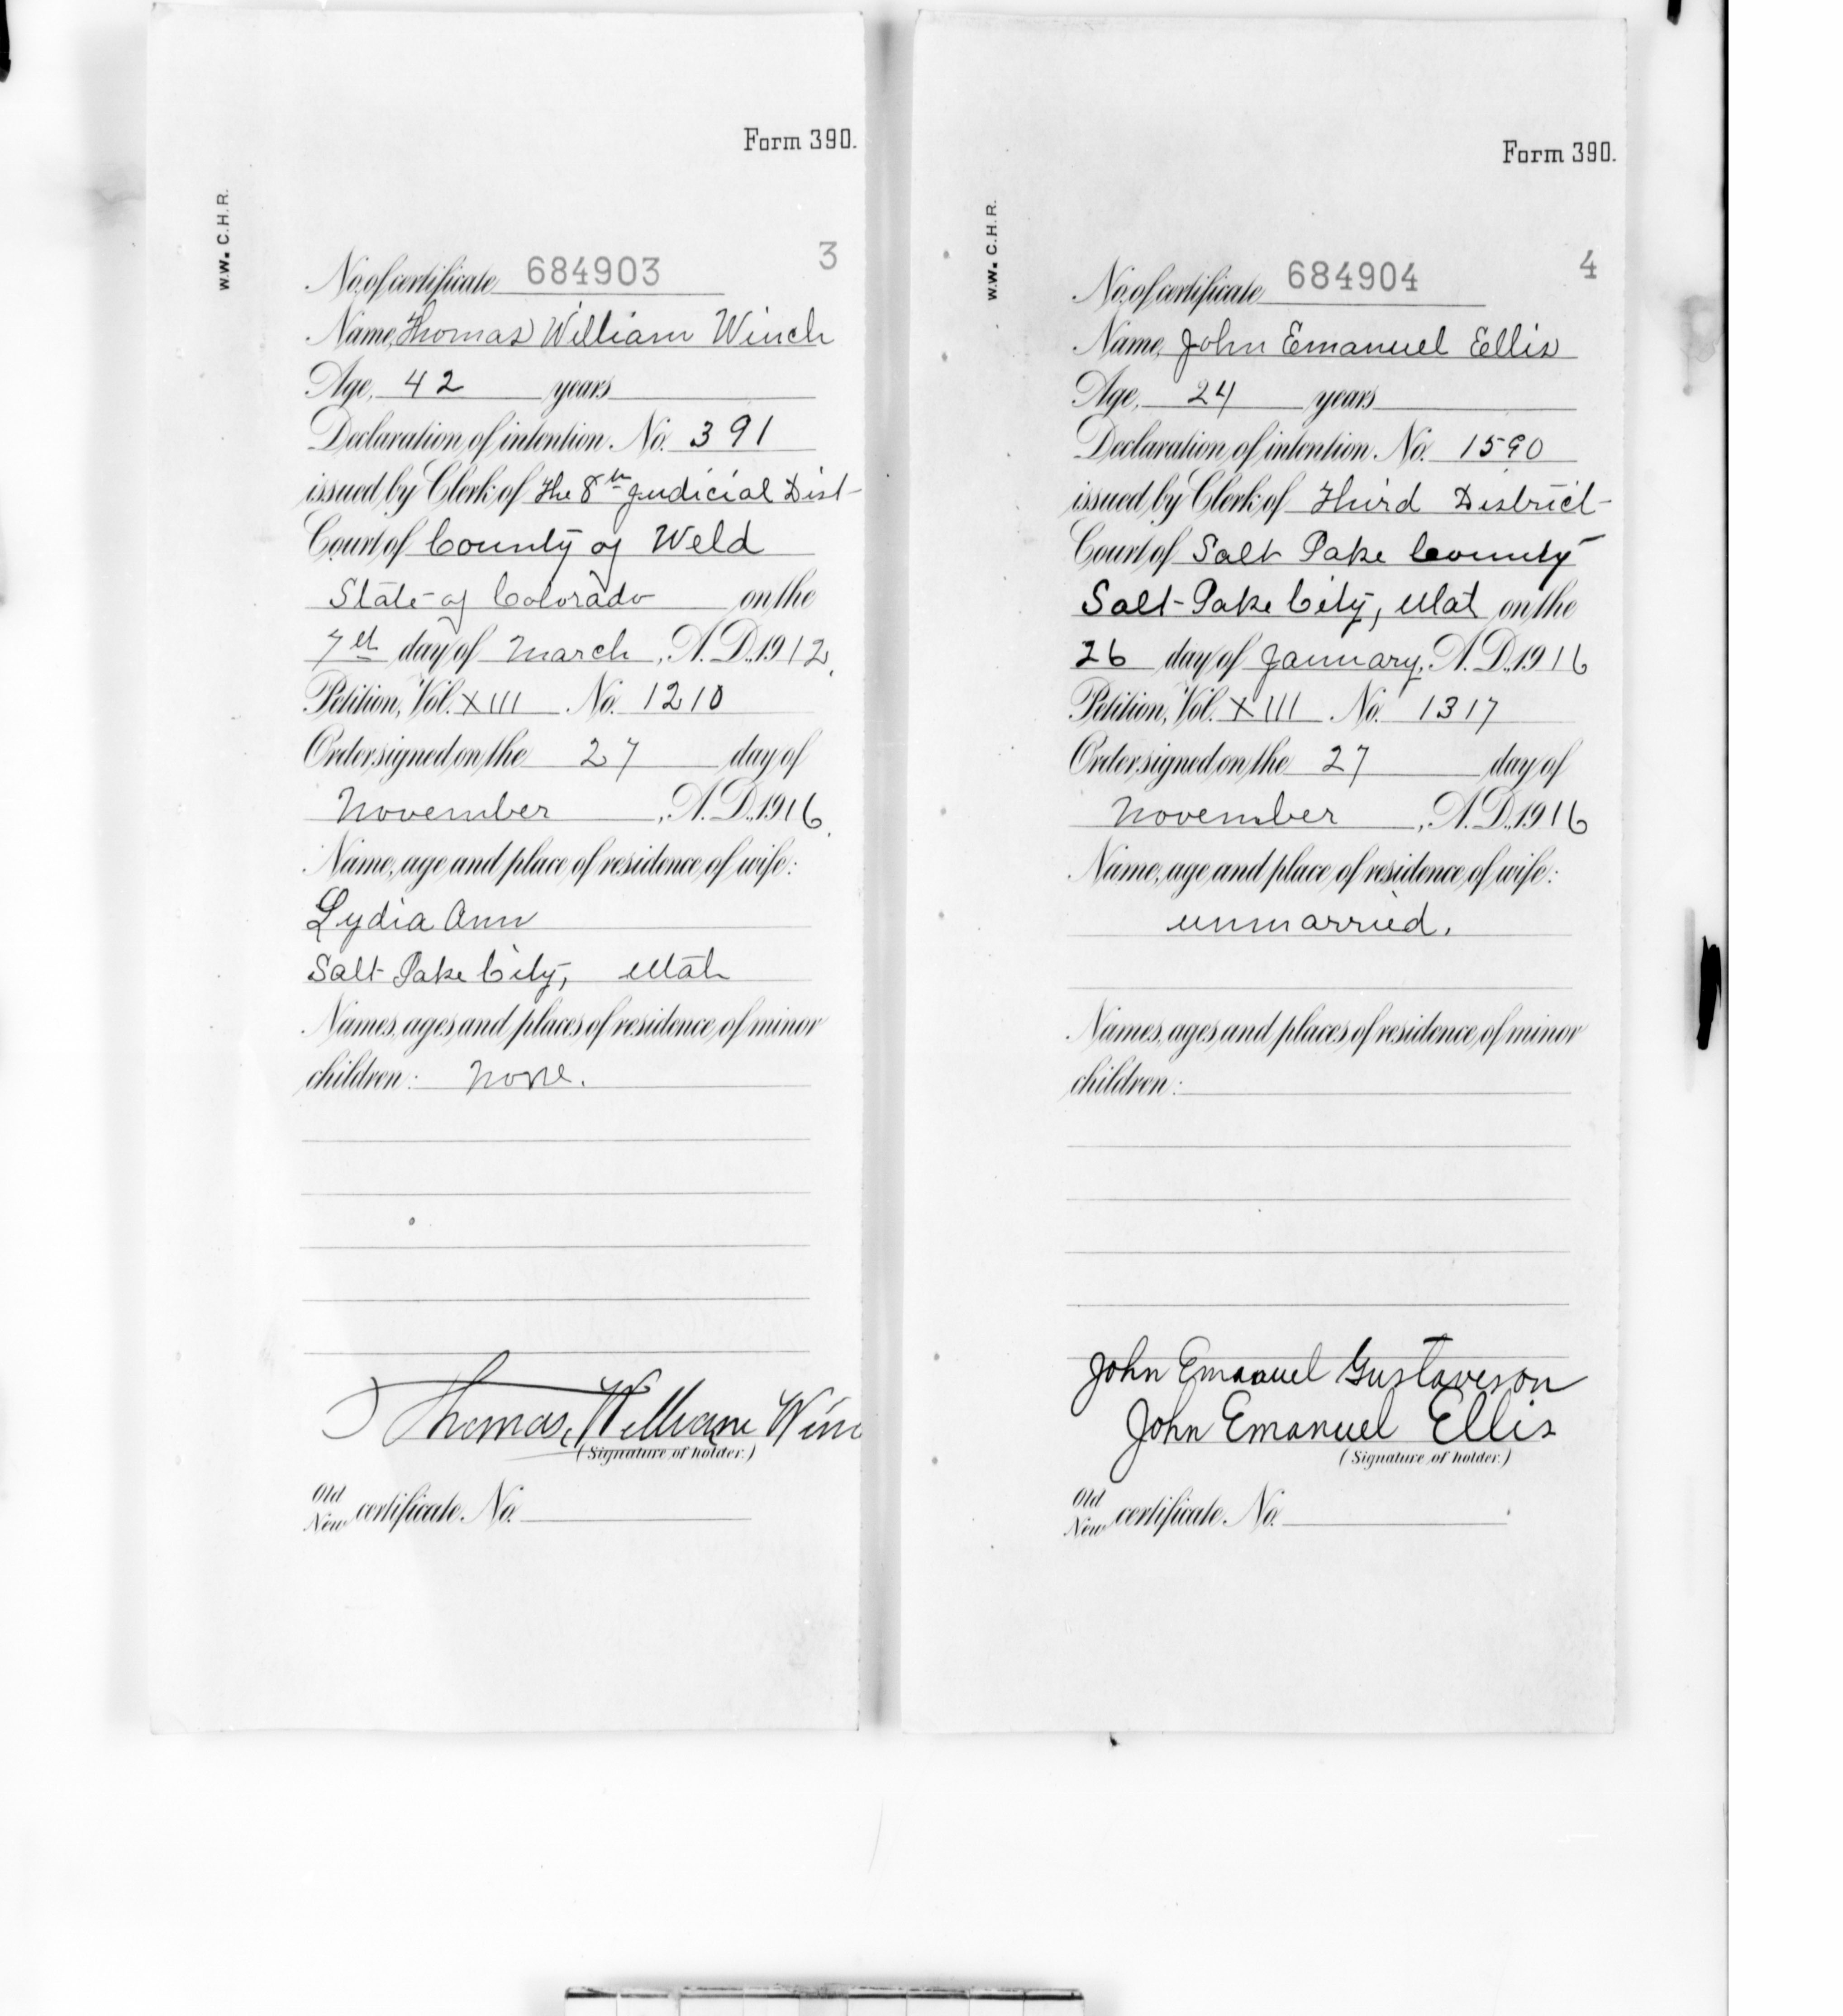 Form 390.
W.W. C.H.R.
3
No. of certificate 684903
Name, Thomas William Winch
Age, 42 years
Declaration of intention. No. 391
issued by Clerk of the 8th Judicial Dist
Court of County of Weld
State of Colorado on the
7th day of March, A.D. 1912.
Petition, Vol. XIII No. 1210
Order signed on the 27 day of
November, A.D. 1916.
Name, age and place of residence of wife:
Lydia Ann
Salt Lake City, Utah
Names, ages and places of residence of minor
children: none.
Thomas William Winc
(Signature of holder.)
Old
New certificate No.
Form 390.
W.W. C.H.R.
4
No. of certificate 684904
Name, John Emanuel Ellis
Age, 24 years
Declaration of intention. No. 1590
issued by Clerk of Third District
Court of Salt Lake County
Salt Lake City, Utah on the
26 day of January, A.D. 1916
Petition, Vol. XIII No. 1317
Order signed on the 27 day of
November, A.D. 1916
Name, age and place of residence of wife:
unmarried.
Names, ages and places of residence of minor
children:
John Emanuel Gustaveson
John Emanuel Ellis
(Signature of holder.)
Old
New certificate No.